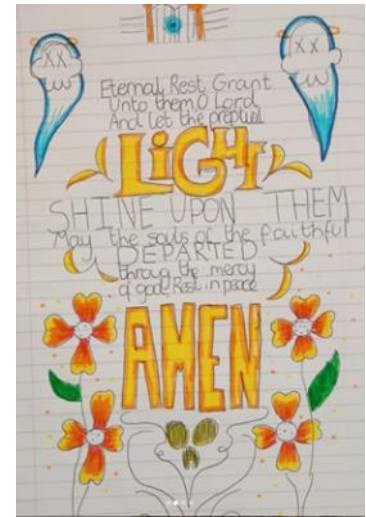 Eternal Rest Grant
Unto them O Lord
And let the preptual
LiGHt
SHINE UPON THEM
May the souls of the faithful
DEPARTED
throug the mercy
of god, Rest in peace
AMEN